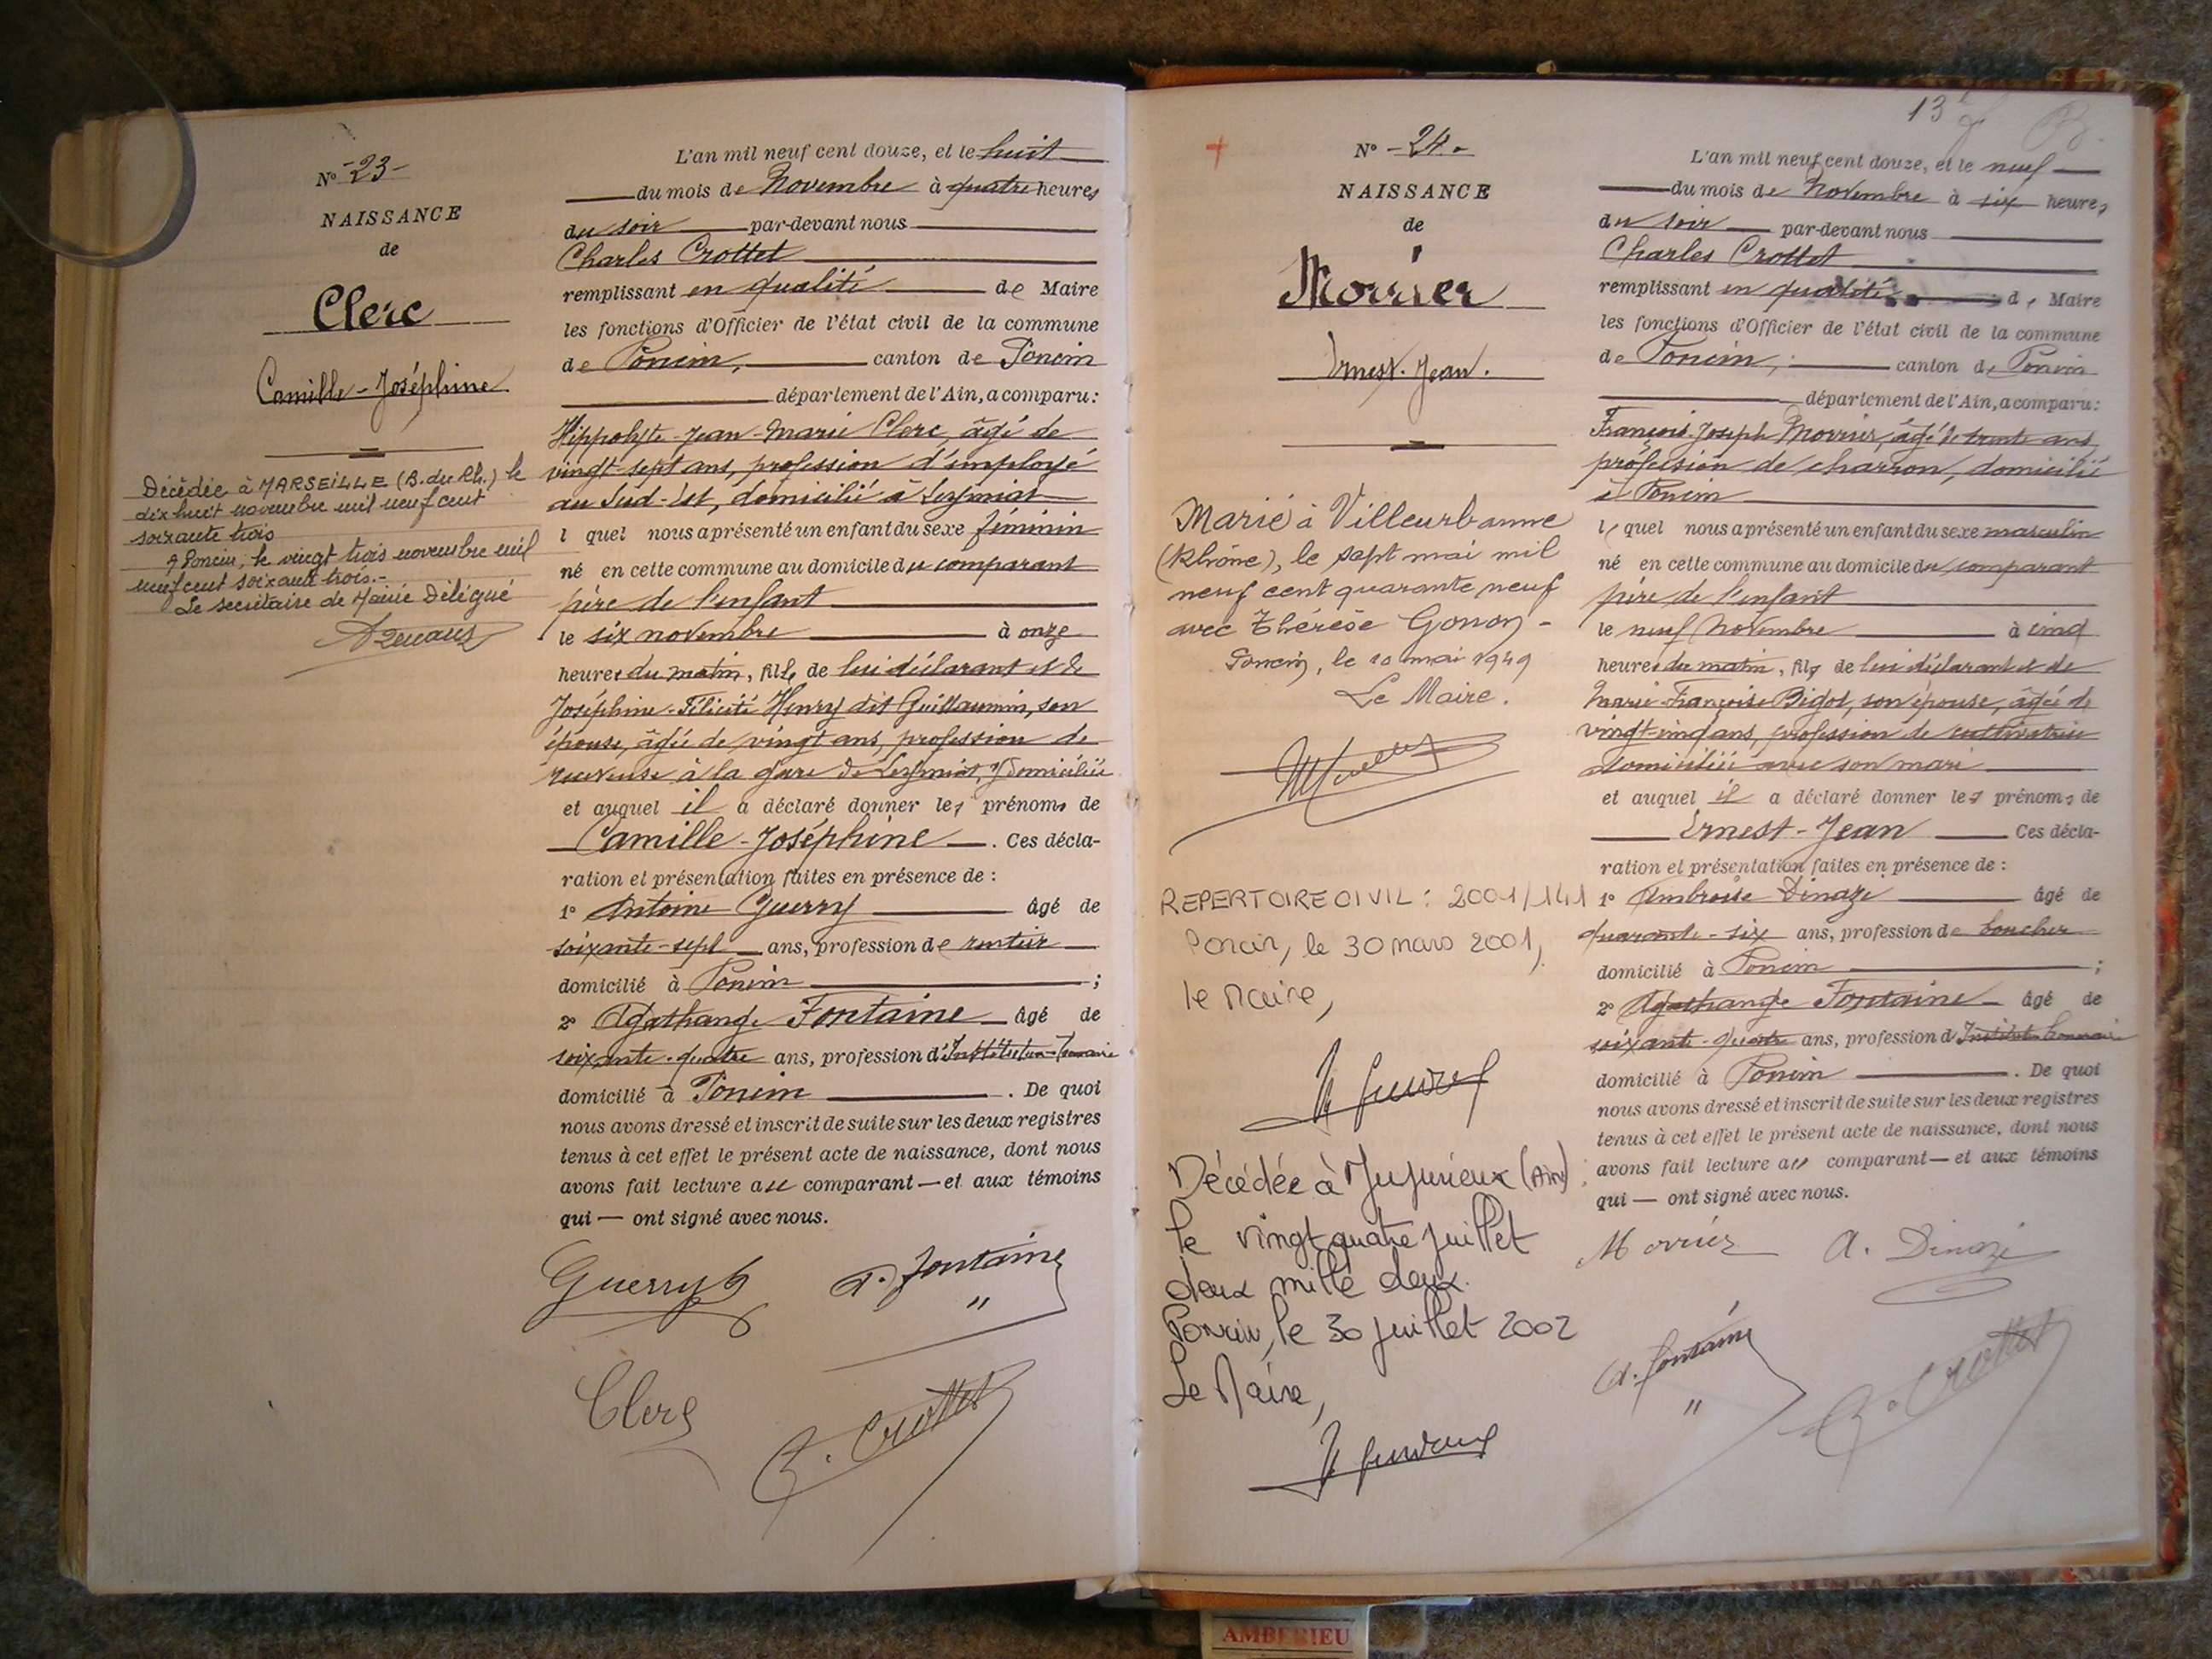 N° -23-
NAISSANCE
de
Clerc
Camille-Joséphine
Décédée à MARSEILLE (B. du Rh.) le
dix huit novembre mil neuf cent
soixante trois
A Poncin, le vingt trois novembre mil
neuf cent soixante trois.-
Le secrétaire de Mairie Délégué
L'an mil neuf cent douze, et le huit
du mois de Novembre à quatre heures
du soir par-devant nous
Charles Crottet
remplissant en qualité de Maire
les fonctions d'Officier de l'état civil de la commune
de Poncin, canton de Poncin
département de l'Ain, a comparu:
Hippolyte-Jean-Marie Clerc, âgé de
vingt-sept ans, profession d'employé
au Sud-Est, domicilié à Leymiat
l quel nous a présenté un enfant du sexe féminin
né en cette commune au domicile du comparant
père de l'enfant
le six novembre à onze
heures du matin, fille de lui déclarant et de
Joséphine-Félicité Henry dit Guillaumin, son
épouse, âgée de vingt ans, profession de
receveuse à la gare de Leymiat, y domiciliée
et auquel il a déclaré donner les prénoms de
Camille-Joséphine. Ces décla-
ration et présentation faites en présence de :
1° Antoine Guerry âgé de
soixante-sept ans, profession de rentier
domicilié à Poncin ;
2° Agathange Fontaine âgé de
soixante-quatre ans, profession d'Instituteur-honoraire
domicilié à Poncin. De quoi
nous avons dressé et inscrit de suite sur les deux registres
tenus à cet effet le présent acte de naissance, dont nous
avons fait lecture au comparant — et aux témoins
qui — ont signé avec nous.
Guerry A. Fontaine
Clerc C. Crottet
13
N° -24-
NAISSANCE
de
Morrier
Ernest-Jean.
Marié à Villeurbanne
(Rhône), le sept mai mil
neuf cent quarante neuf
avec Thérèse Gonon -
Poncin, le 10 mai 1949
Le Maire.
REPERTOIRE CIVIL : 2001/141
Poncin, le 30 mars 2001,
le Maire,
Décédée à Jujurieux (Ain)
le vingt quatre juillet
deux mille deux.
Poncin, le 30 juillet 2002
Le Maire,
L'an mil neuf cent douze, et le neuf
du mois de Novembre à six heures
du soir par-devant nous
Charles Crottet
remplissant en qualité de Maire
les fonctions d'Officier de l'état civil de la commune
de Poncin, canton de Poncin
département de l'Ain, a comparu:
François-Joseph Morrier, âgé de trente ans,
profession de charron, domicilié
à Poncin
le quel nous a présenté un enfant du sexe masculin
né en cette commune au domicile du comparant
père de l'enfant
le neuf Novembre à cinq
heures du matin, fils de lui déclarant et de
Marie-Françoise Bigot, son épouse, âgée de
vingt-cinq ans, profession de cultivatrice
domiciliée avec son mari
et auquel il a déclaré donner les prénoms de
Ernest-Jean Ces décla-
ration et présentation faites en présence de :
1° Ambroise Dinaze âgé de
quarante-six ans, profession de boucher
domicilié à Poncin ;
2° Agathange Fontaine âgé de
soixante-quatre ans, profession d'Institut. honoraire
domicilié à Poncin. De quoi
nous avons dressé et inscrit de suite sur les deux registres
tenus à cet effet le présent acte de naissance, dont nous
avons fait lecture au comparant — et aux témoins
qui — ont signé avec nous.
Morrier A. Dinaze
A. Fontaine C. Crottet
AMBERIEU